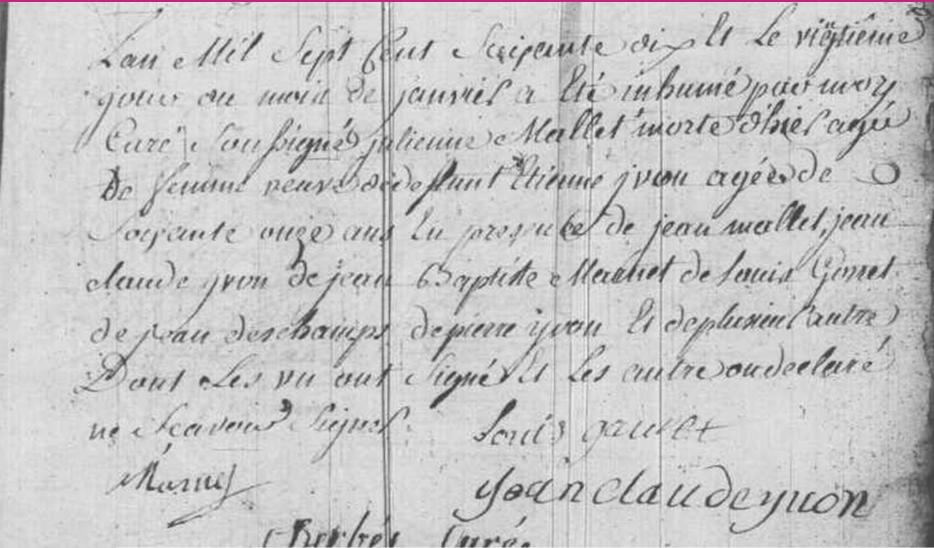 Lan Mil Sept Cent Soixante dix Et Le vigtieme
jour du mois de janvier a Eté inhumé par moy
Curé Soussigné julienne Mallet morte d'hier agée
De femme veuve de deffunt Etienne yvon agée de
Soixante onze ans En presence de jean mallet, jean
claude yvon de jean Baptiste Marnet de Louis Gonet
de jean deschamps de pierre yvon Et de plusieurs autre
Dont Les un ont Signé Et Les autre on declaré
ne Scavoir Signer.
Louis
jean claude yvon
Curé